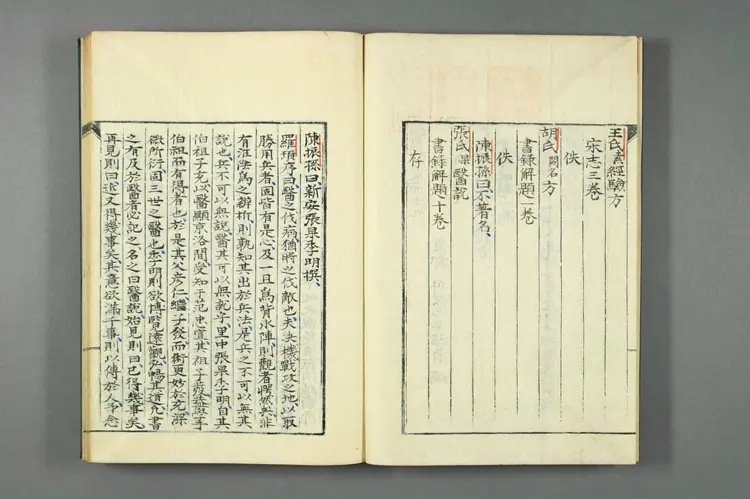 王氏素經驗方
宋志三卷
佚
胡氏闕名方
書錄解題一卷
佚
陳振孫曰不著名
張氏杲醫說
書錄解題十卷
存
陳振孫曰新安張杲季明撰
羅頊序曰醫之伐病猶將之伐敵也夫決機戰攻之地以取
勝用兵者固皆有是心及一旦為背水陣則觀者愕然矣非
有淮陰為之辨析則孰知其出於兵法是兵之不可以無其
說也兵不可以無說醫其可以無說乎里中張杲季明自其
伯祖子充以醫顯京洛間受知于范忠宣其祖子發蓋
伯祖而有得者也於是其父彥仁繼子發而術更妙於充深
微所衍固三世之醫也季明則欲博覽遠觀弘暢其道凡書
之有及於醫者必記之名之曰醫說始見則曰已得幾事矣
再見則曰逑又得幾事矣其意欲滿千事則以傳於人予念